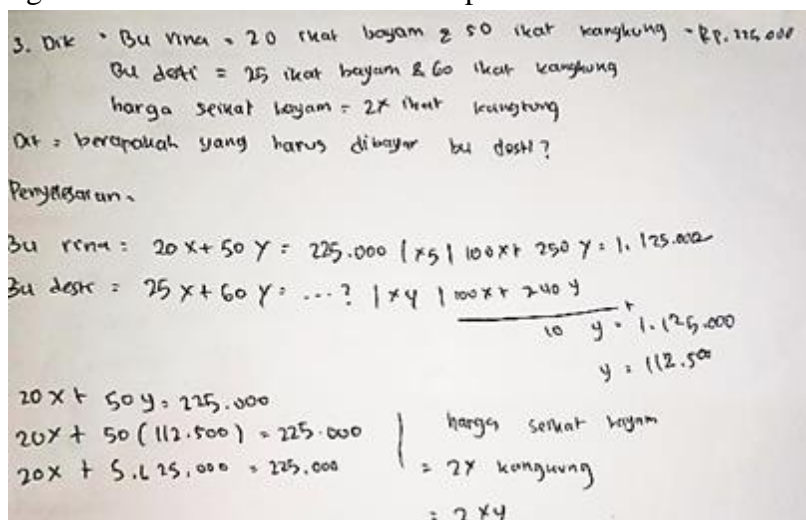 3. Dik • Bu rina = 20 ikat bayam & 50 ikat kangkung = Rp. 225.000
Bu desti = 25 ikat bayam & 60 ikat kangkung
harga seikat bayam = 2x ikat kangkung
Dit = berapakah yang harus dibayar bu desti?
Penyelesaian.
Bu rina = 20x + 50y = 225.000 | x5 | 100x + 250y = 1.125.000
Bu desti = 25x + 60y = ...? | x4 | 100x + 240y
+
10 y = 1.125.000
y = 112.500
20x + 50y = 225.000
20x + 50 (112.500) = 225.000
20x + 5.625.000 = 225.000
harga seikat bayam
= 2x kangkung
= 2 xy